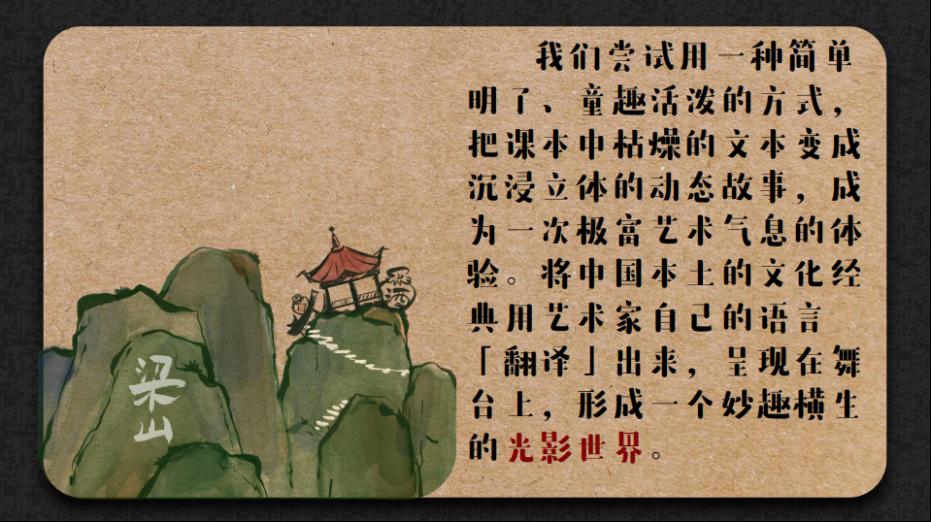 我们尝试用一种简单
明了、童趣活泼的方式，
把课本中枯燥的文本变成
沉浸立体的动态故事，成
为一次极富艺术气息的体
验。将中国本土的文化经
典用艺术家自己的语言
「翻译」出来，呈现在舞
台上，形成一个妙趣横生
的光影世界。
梁山